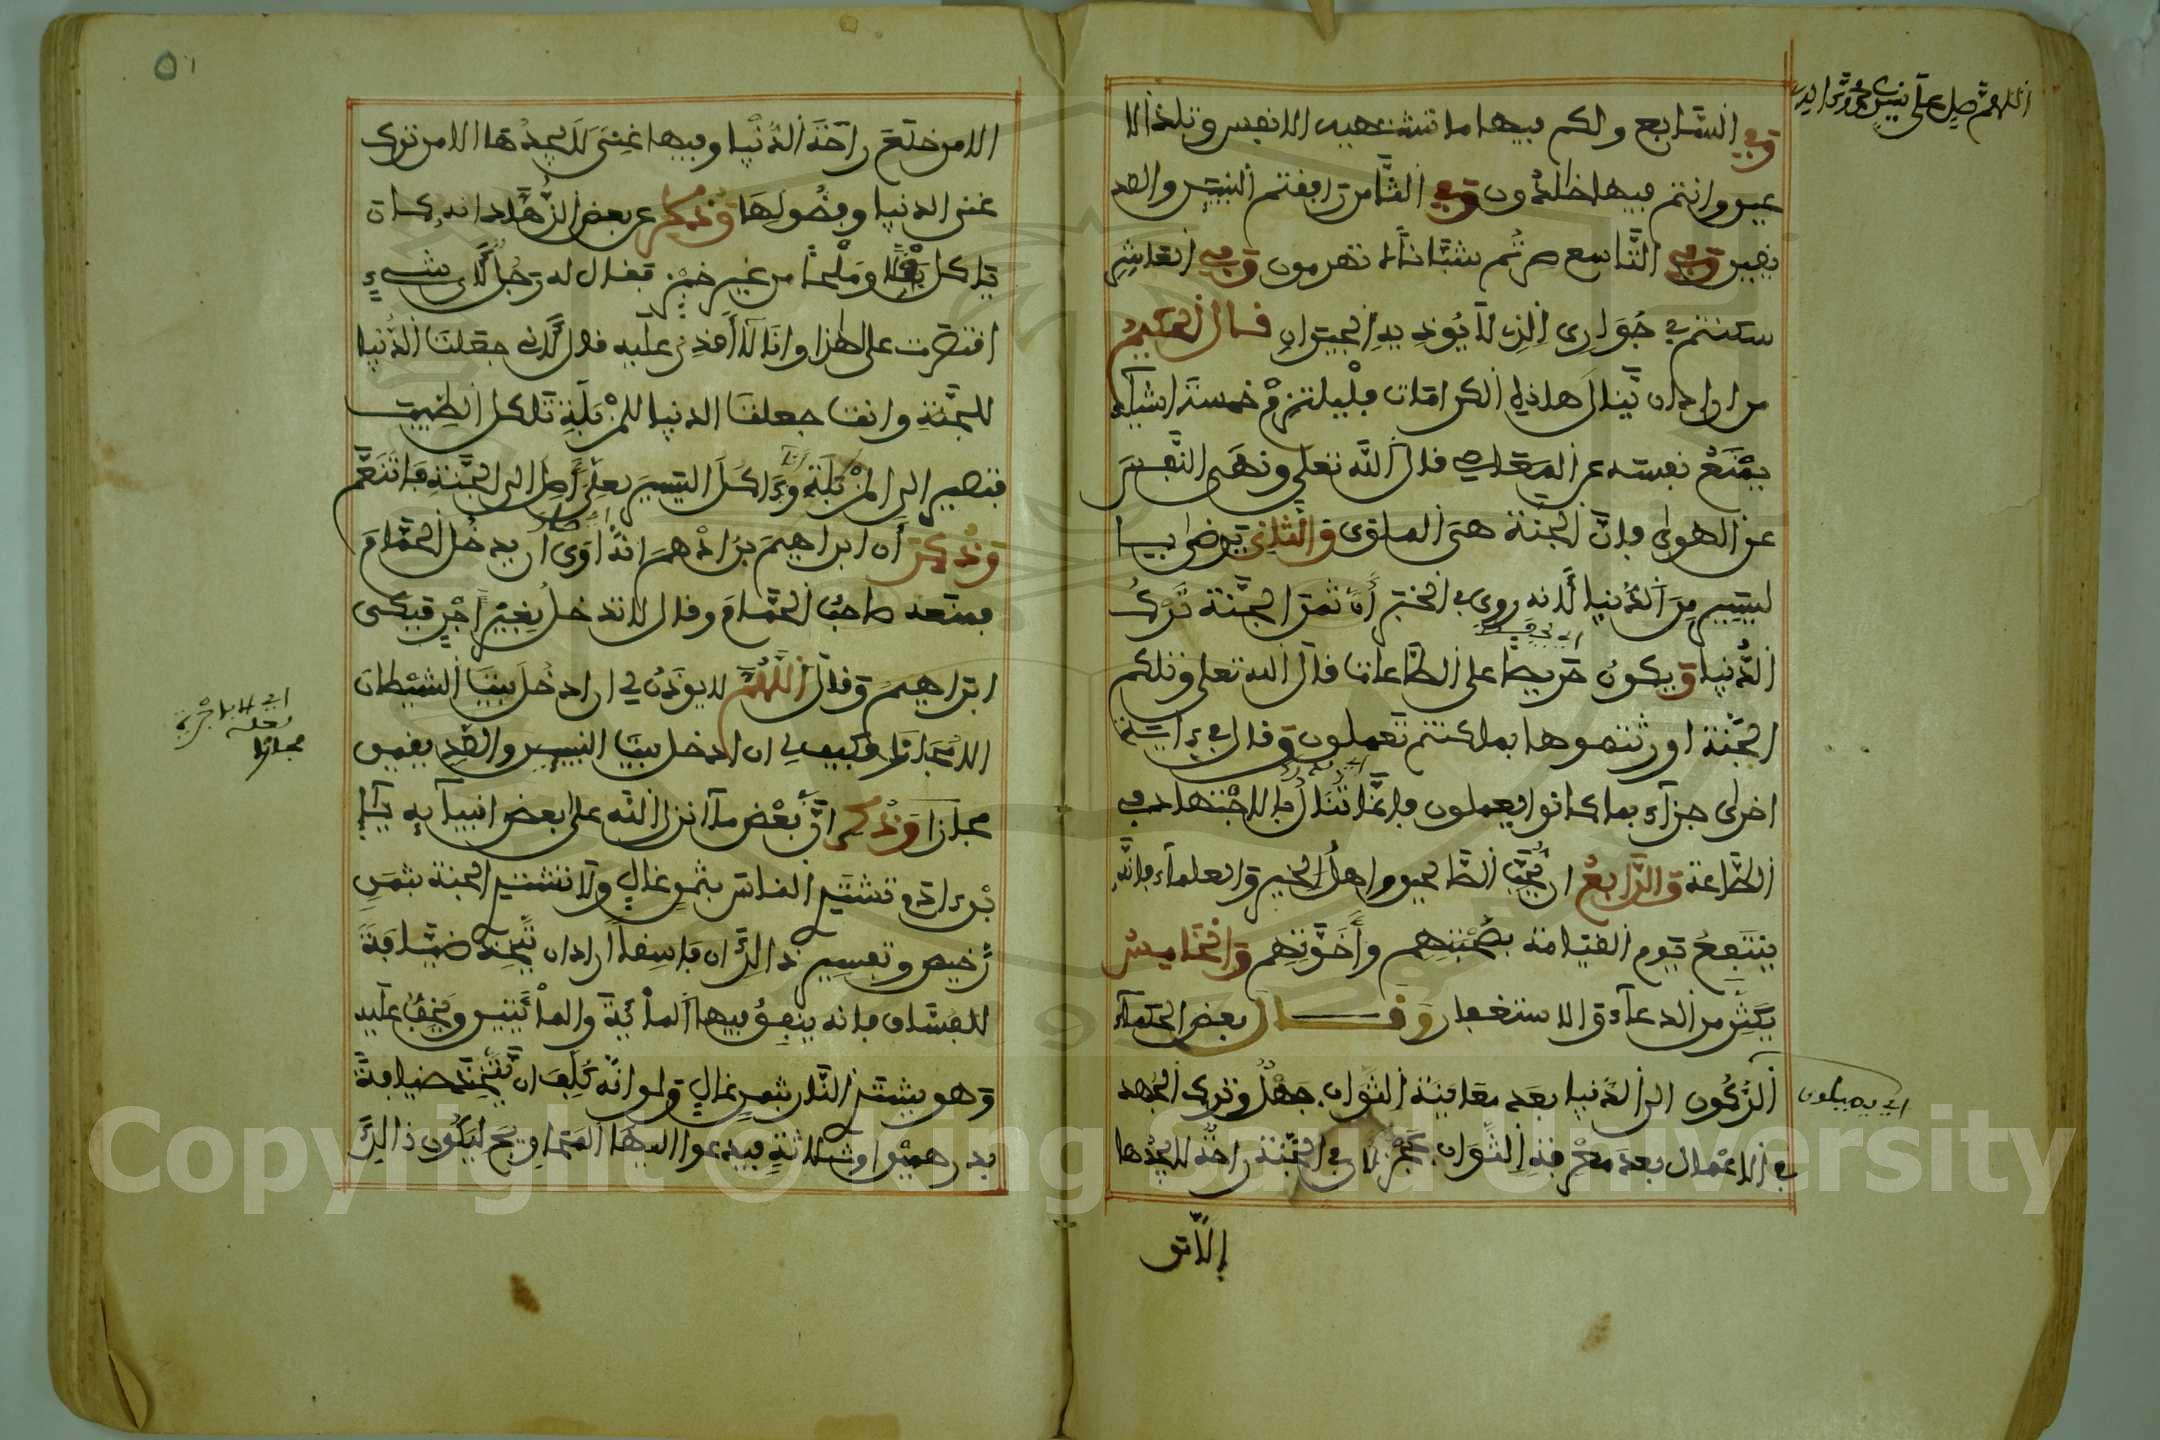 اللهم صل على
وفي السابع ولكم فيها ما تشتهيه الانفس وتلذ الا
عين وانتم فيها خلدون وفي الثامن رافقتم النبيين والصد
يقين وفي التاسع صرتم شبانا لا تهرمون وفي العاشر
سكنتم في جواري الذي لا يوذي به الجيران قال الحكيم
من اراد ان ينال هاذه الكرامات فليلتزم خمسة اشياء
يمنع نفسه عن المعاصي قال الله تعلى ونهى النفس
عن الهوى فان الجنة هي الماوى والثاني يرضى بيا
ليسير من الدنيا لانه روي في الخبر ان ثمن الجنة ترك
الدنيا ويكون حريصا على الطاعات قال الله تعلى وتلكم
الجنة اورثتموها بما كنتم تعملون وقال في ءاية
اخرى جزاء بما كانوا يعملون فانما تنال بالاجتهاد في
الطاعة والرابع ان يحب الصالحين واهل الخير والعلماء فانه
ينتفع يوم القيامة بصحبتهم وأخوتهم والخامس
يكثر من الدعاء والاستغفار وقال بعض الحكماء
الركون الى الدنيا بعد معاينة الثواب جهل وترك الجهد
في الاعمال بعد معرفة الثواب عجز في الجنة راحة لا يجدها
الا من
الا من خلع راحة الدنيا وفيها غنى لا يجدها الا من ترك
غنى الدنيا وفضولها وذكر عن بعض الزهاد انه كان
ياكل بقلا وملحا من غير خبز فقال له رجل لاي شيء
اقتصرت على هذا وانا لا اقدر عليه قال لاني جعلت الدنيا
للجنة وانت جعلت الدنيا للمزبلة تاكل الطيبت
فتصير الى المزبلة وءاكل اليسير لعلي أصل الى الجنة فاتنعم
وذكر أن ابراهيم بن ادهم انه اوى ان يدخل الحمام
فمنعه صاحب الحمام وقال لا تدخل بغير أجر فبكى
ابراهيم وقال اللهم لا يوذن لي ان ادخل بيت الشيطان
الا مجانا فكيف لي ان ادخل بيت النبيين والصديقين
مجانا وذكر ان بعض ما انزل الله على بعض انبيايه يا
بن ءادم تشتري النار بثمن غال ولا تشتري الجنة بثمن
رخيص وتفسير ذالك ان فاسقا اراد ان يتخذ ضيافة
للفساق فانه ينفق فيها المائية والمائتين ويخف عليه
وهو يشتري النار بثمن غال ولو انه كلف ان يتخذ ضيافة
بدرهمين او ثلاثة فيدعوا اليها المحتاويج ليكون ذالك
Copyright © King Saud University